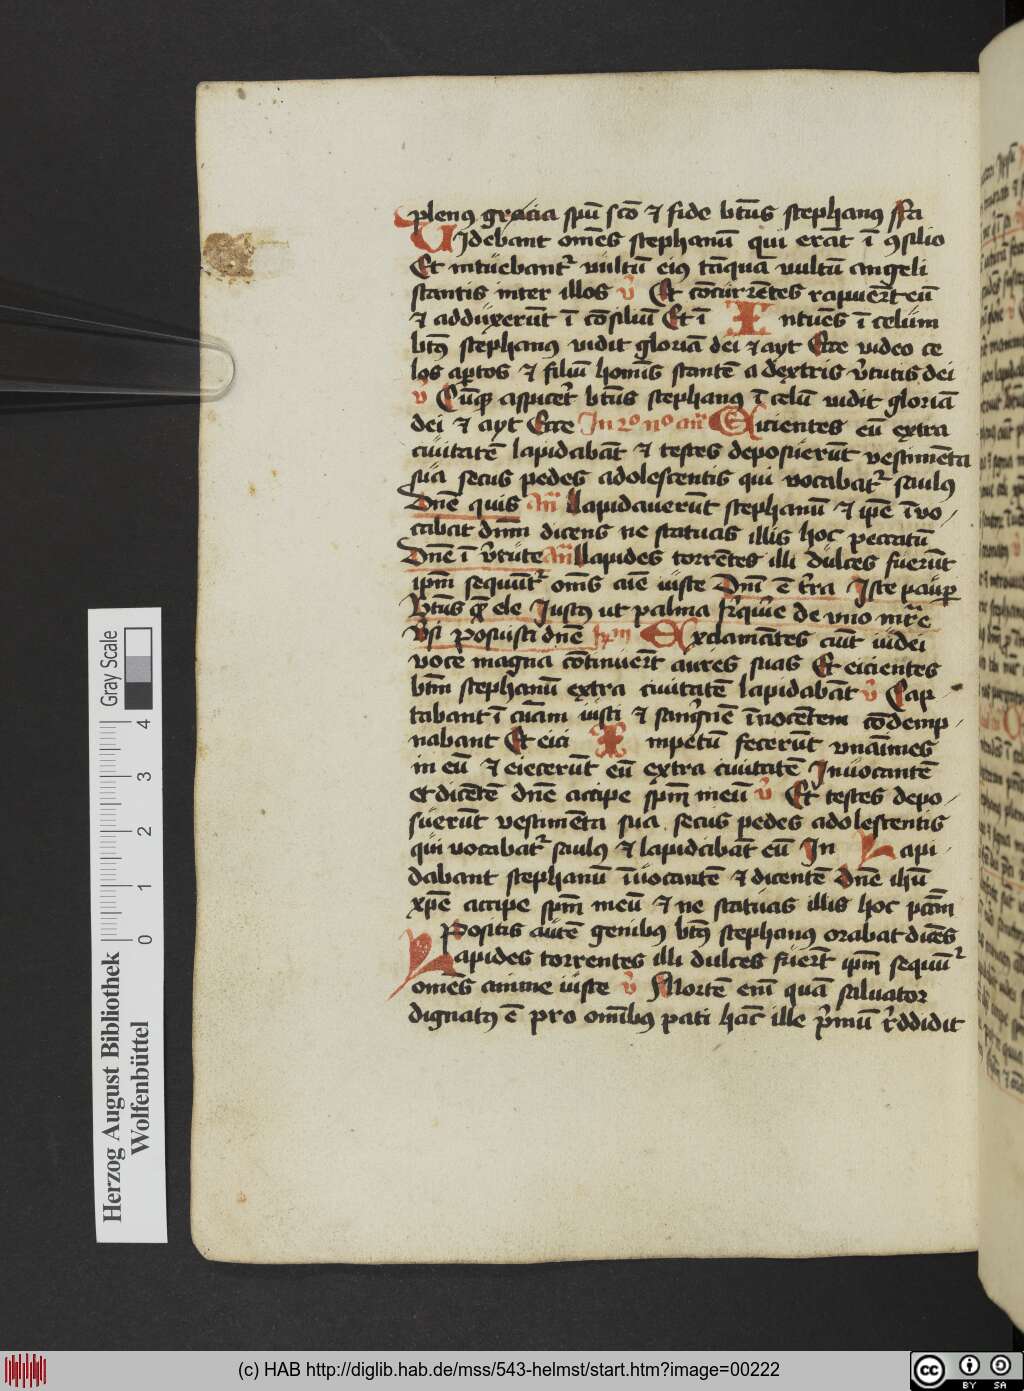 plenꝯ gracia spū scō ⁊ fide btūs stephanꝯ ffa
Videbant om̄es stephanū qui erāt ī ꝯsilio
Et intuebantᷣ vultū eiꝯ tāquā vultū angeli
stantis inter illos v̉ Et cōcurrētes rapuerūt eū
⁊ adduxerūt ī cōsiliū Et ī Intuēs ī celum
btꝯ stephanꝯ vidit gloriā dei ⁊ ayt Ecce video ce
los aꝑtos ⁊ filiū homīs stantē a dextris v̉tutis dei
v̉ Cūqꝫ aspicet̉ btūs stephanꝯ ī celū vidit gloriā
dei ⁊ ayt Ecce In Eicientes eū extra
ciuitatē lapidabāt ⁊ testes deposuerūt vestimēta
sua secus pedes adolescentis qui vocabatᷣ saulꝯ
Dn̄e quis an̄ Lapidauerūt stephanū ⁊ ip̄e īuo
cabat dn̄m dicens ne statuas illis hoc peccatū
Dn̄e ī v̉tute an̄ Lapides torrētes illi dulces fuerūt
ip̄m sequūtᷣ om̄s aīe iuste Dn̄i ē t̉ra Iste pauꝑ
Btūs Iustꝯ ut palma de vno
v̉si posuisti dn̄e Exclamātes aūt iudei
voce magna cōtinuerūt aures suas Et eicientes
btm̄ stephanū extra ciuitatē lapidabāt v̉ Cap
tabant ī aīam iusti ⁊ sangnē īnocētem cōdemp
nabant Et eici Impetū fecerūt vnaīmes
in eū ⁊ eiecerūt eū extra ciuitatē Inuocantē
et dicētē dn̄e accipe sp̄m meū v̉ Et testes depo
suerūt vestimēta sua secus pedes adolescentis
qui vocabatᷣ saulꝯ ⁊ lapidabāt eū In Lapi
dabant stephanū īuocantē ⁊ dicentē dn̄e ihū
xp̄e accipe sp̄m meū ⁊ ne statuas illis hoc pc̄cm̄
Positis autē genibꝯ btꝯ stephanꝯ orabat dicēs
Lapides torrentes illi dulces fuerūt ip̄m sequūtᷣ
om̄es anime iuste v̉ Mortē eni quā saluator
dignatꝯ ē pro om̄ibꝯ pati hāc ille p̉mū r̉ddidit
Gray Scale
0 1 2 3 4
Herzog August Bibliothek
Wolfenbüttel
(c) HAB http://diglib.hab.de/mss/543-helmst/start.htm?image=00222
cc BY SA